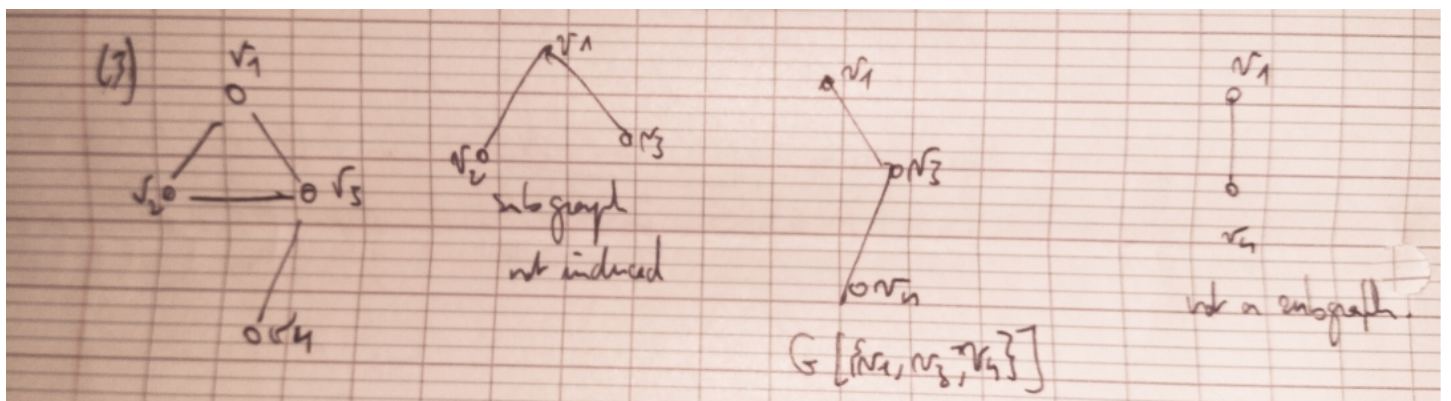 (3)
v1
v2
v3
v4
v1
v2
v3
subgraph
not induced
v1
v3
v4
G[{v1, v3, v4}]
v1
v4
not a subgraph.